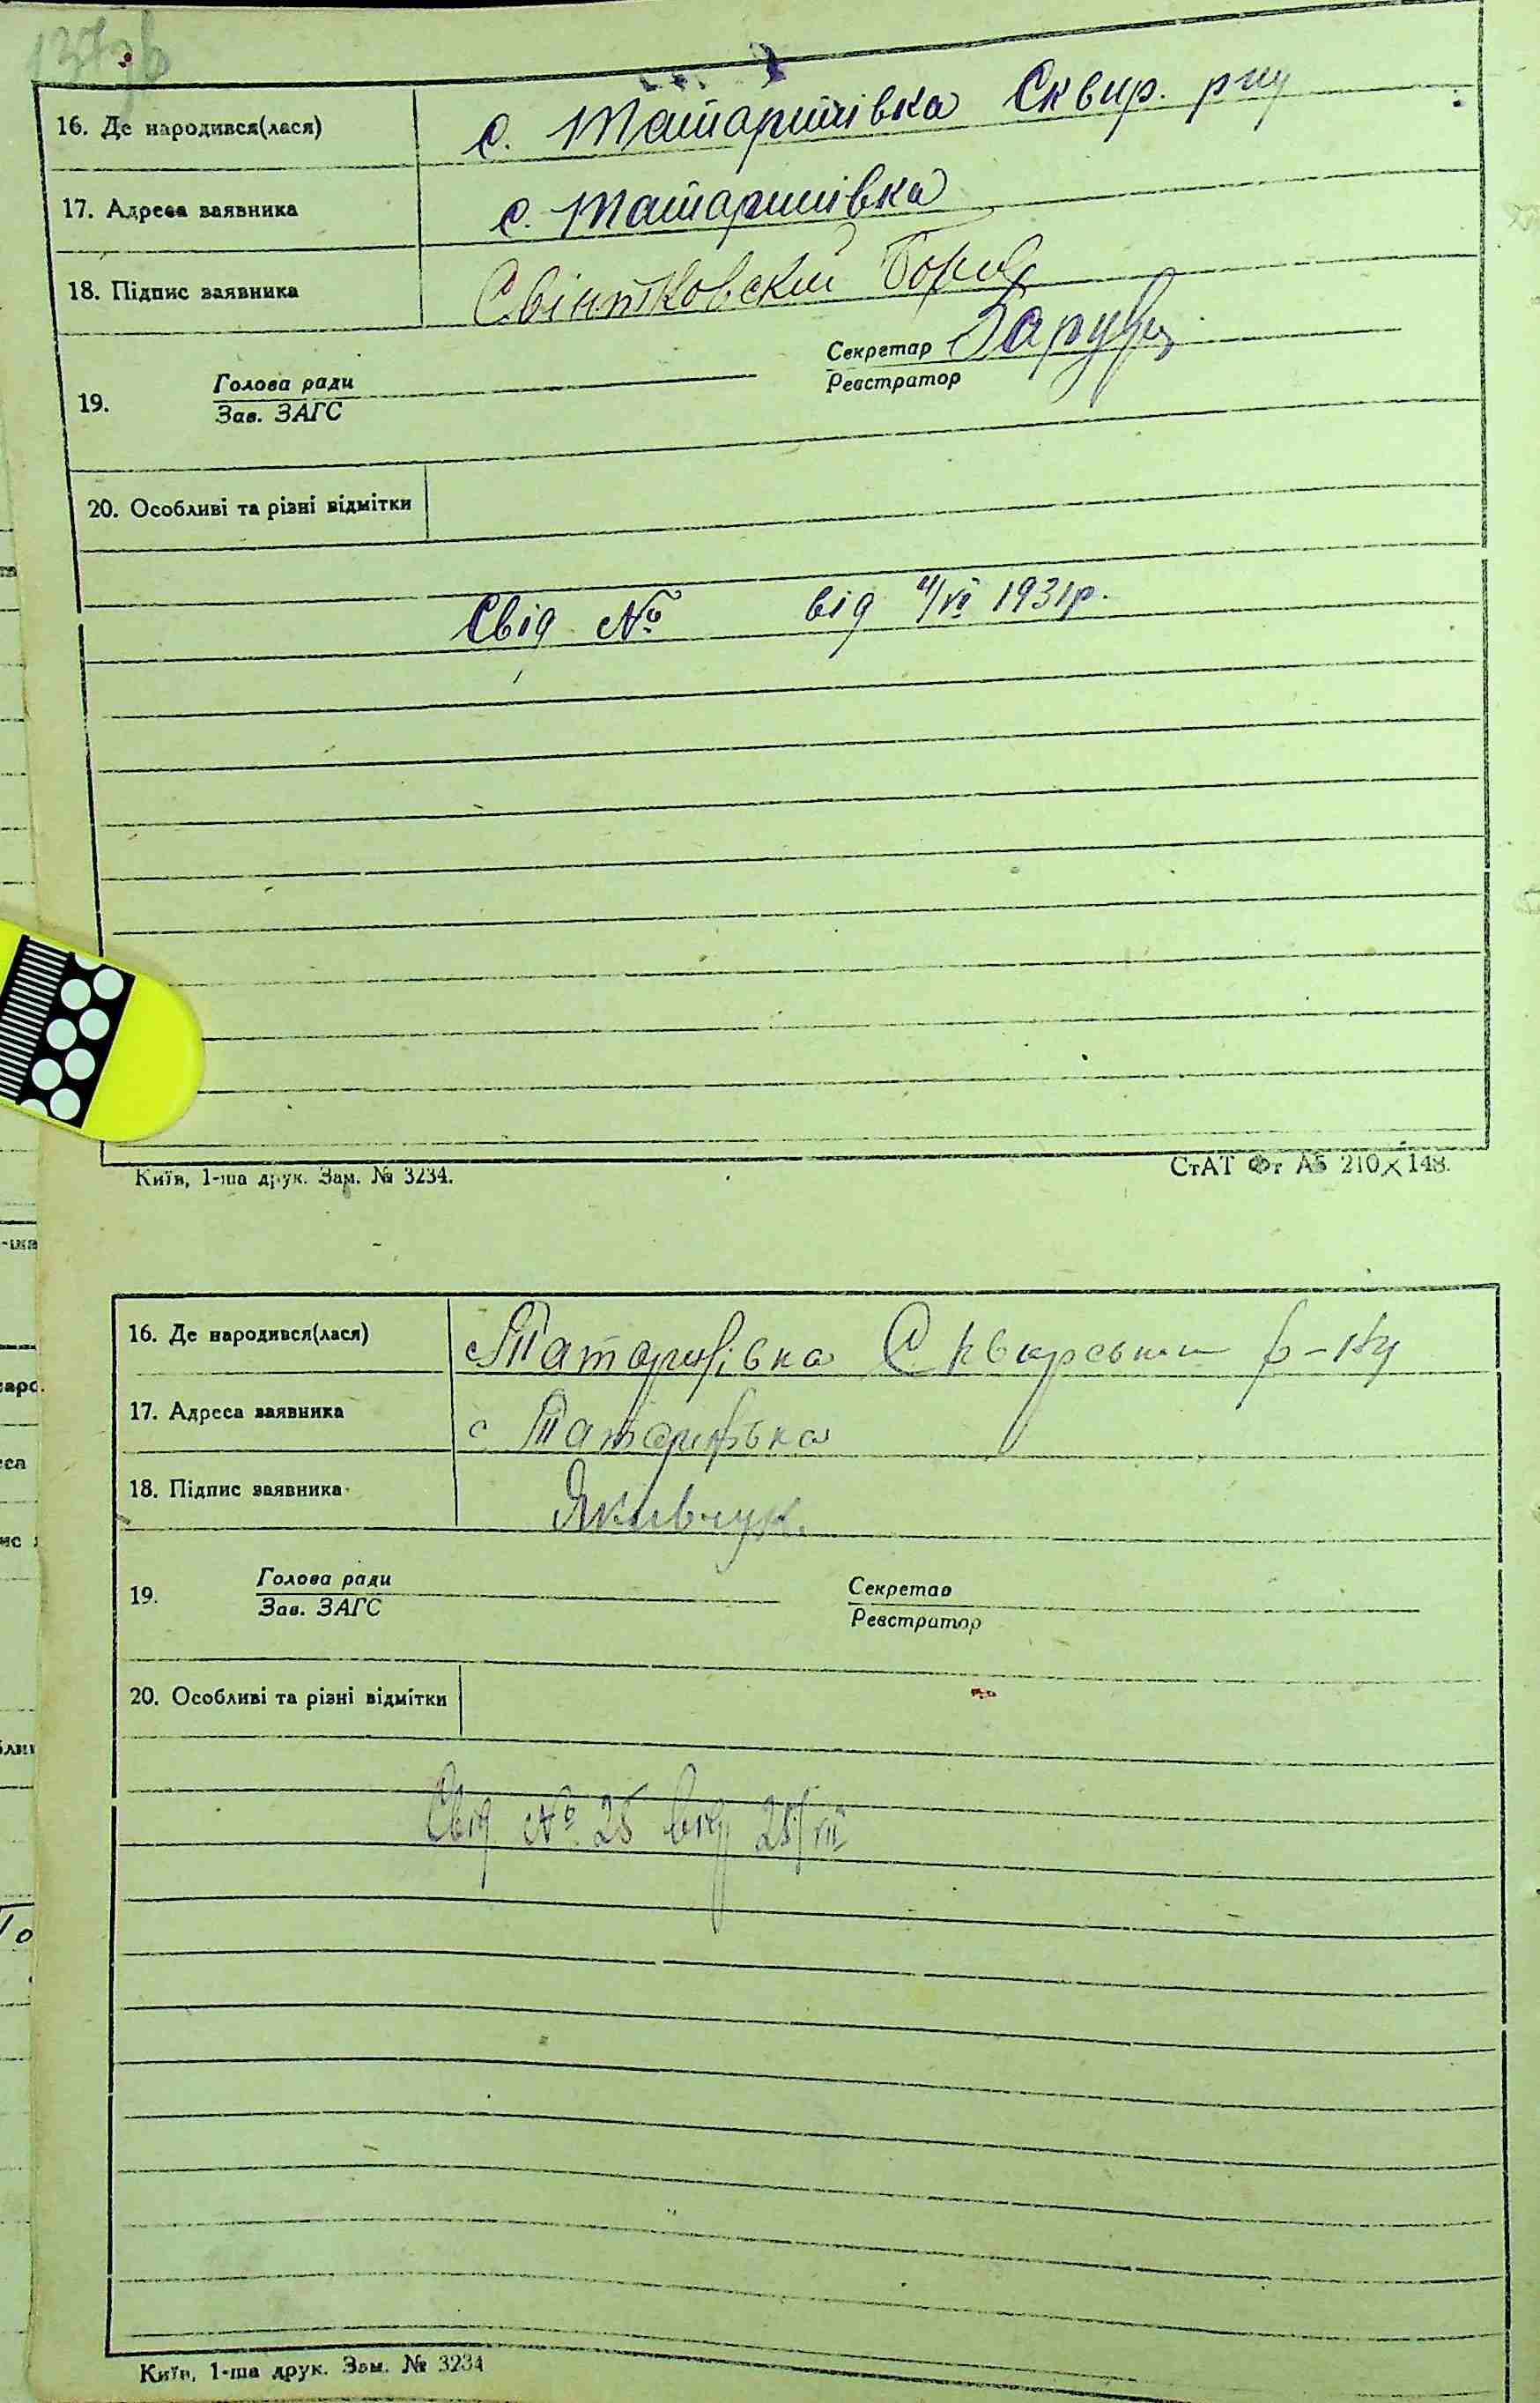 137зв
16. Де народився(лася) с. Татаринівка Сквир. р-ну
17. Адреса заявника с. Татаринівка
18. Підпис заявника Свінтковский Борис
19. Голова ради Секретар
Зав. ЗАГС Реєстратор
20. Особливі та різні відмітки
Свід № від 4/VII 1931р.
Київ, 1-ша друк. Зам. № 3234.
СтАТ Фт А5 210×148.
16. Де народився(лася) с Татаринівка Сквирський р-ну
17. Адреса заявника с Татаринівка
18. Підпис заявника Яківчук.
19. Голова ради Секретар
Зав. ЗАГС Реєстратор
20. Особливі та різні відмітки
Свід № 25 від 25/VII
Київ, 1-ша друк. Зам. № 3234